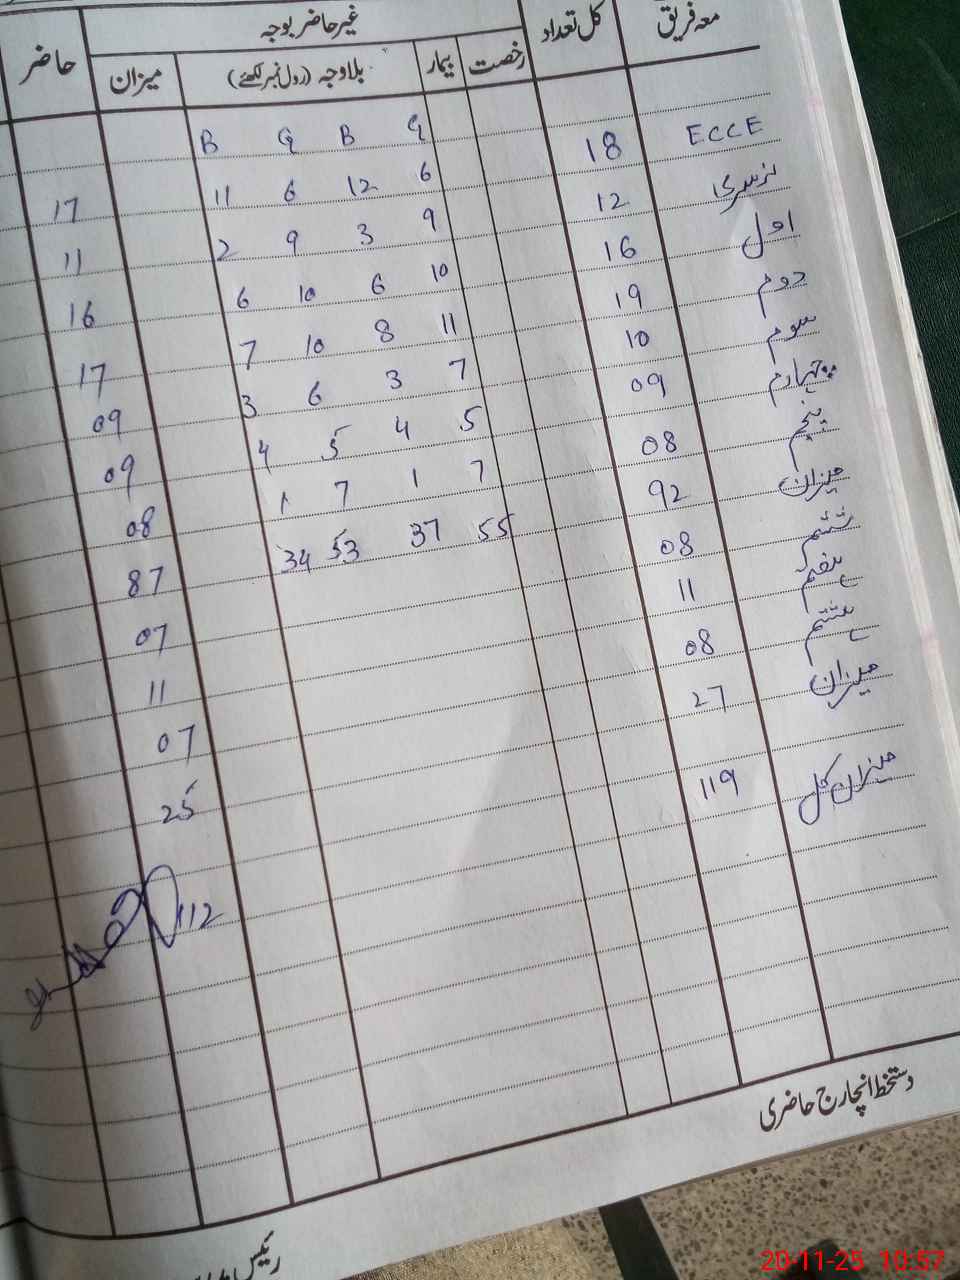 معہ فریق کل تعداد غیر حاضر بوجہ حاضر
رخصت بیمار بلاوجہ (رول نمبر لکھئے) میزان
B G B G
ECCE 18 6 12 6 11 17
نرسری 12 9 3 9 2 11
اول 16 10 6 10 6 16
دوم 19 11 8 10 7 17
سوم 10 7 3 6 3 09
چہارم 09 5 4 5 4 09
پنجم 08 7 1 7 1 08
میزان 92 55 37 53 34 87
ششم 08 07
ہفتم 11 11
ہشتم 08 07
میزان 27 25
میزان کل 119 112
دستخط انچارج حاضری
20-11-25 10:57